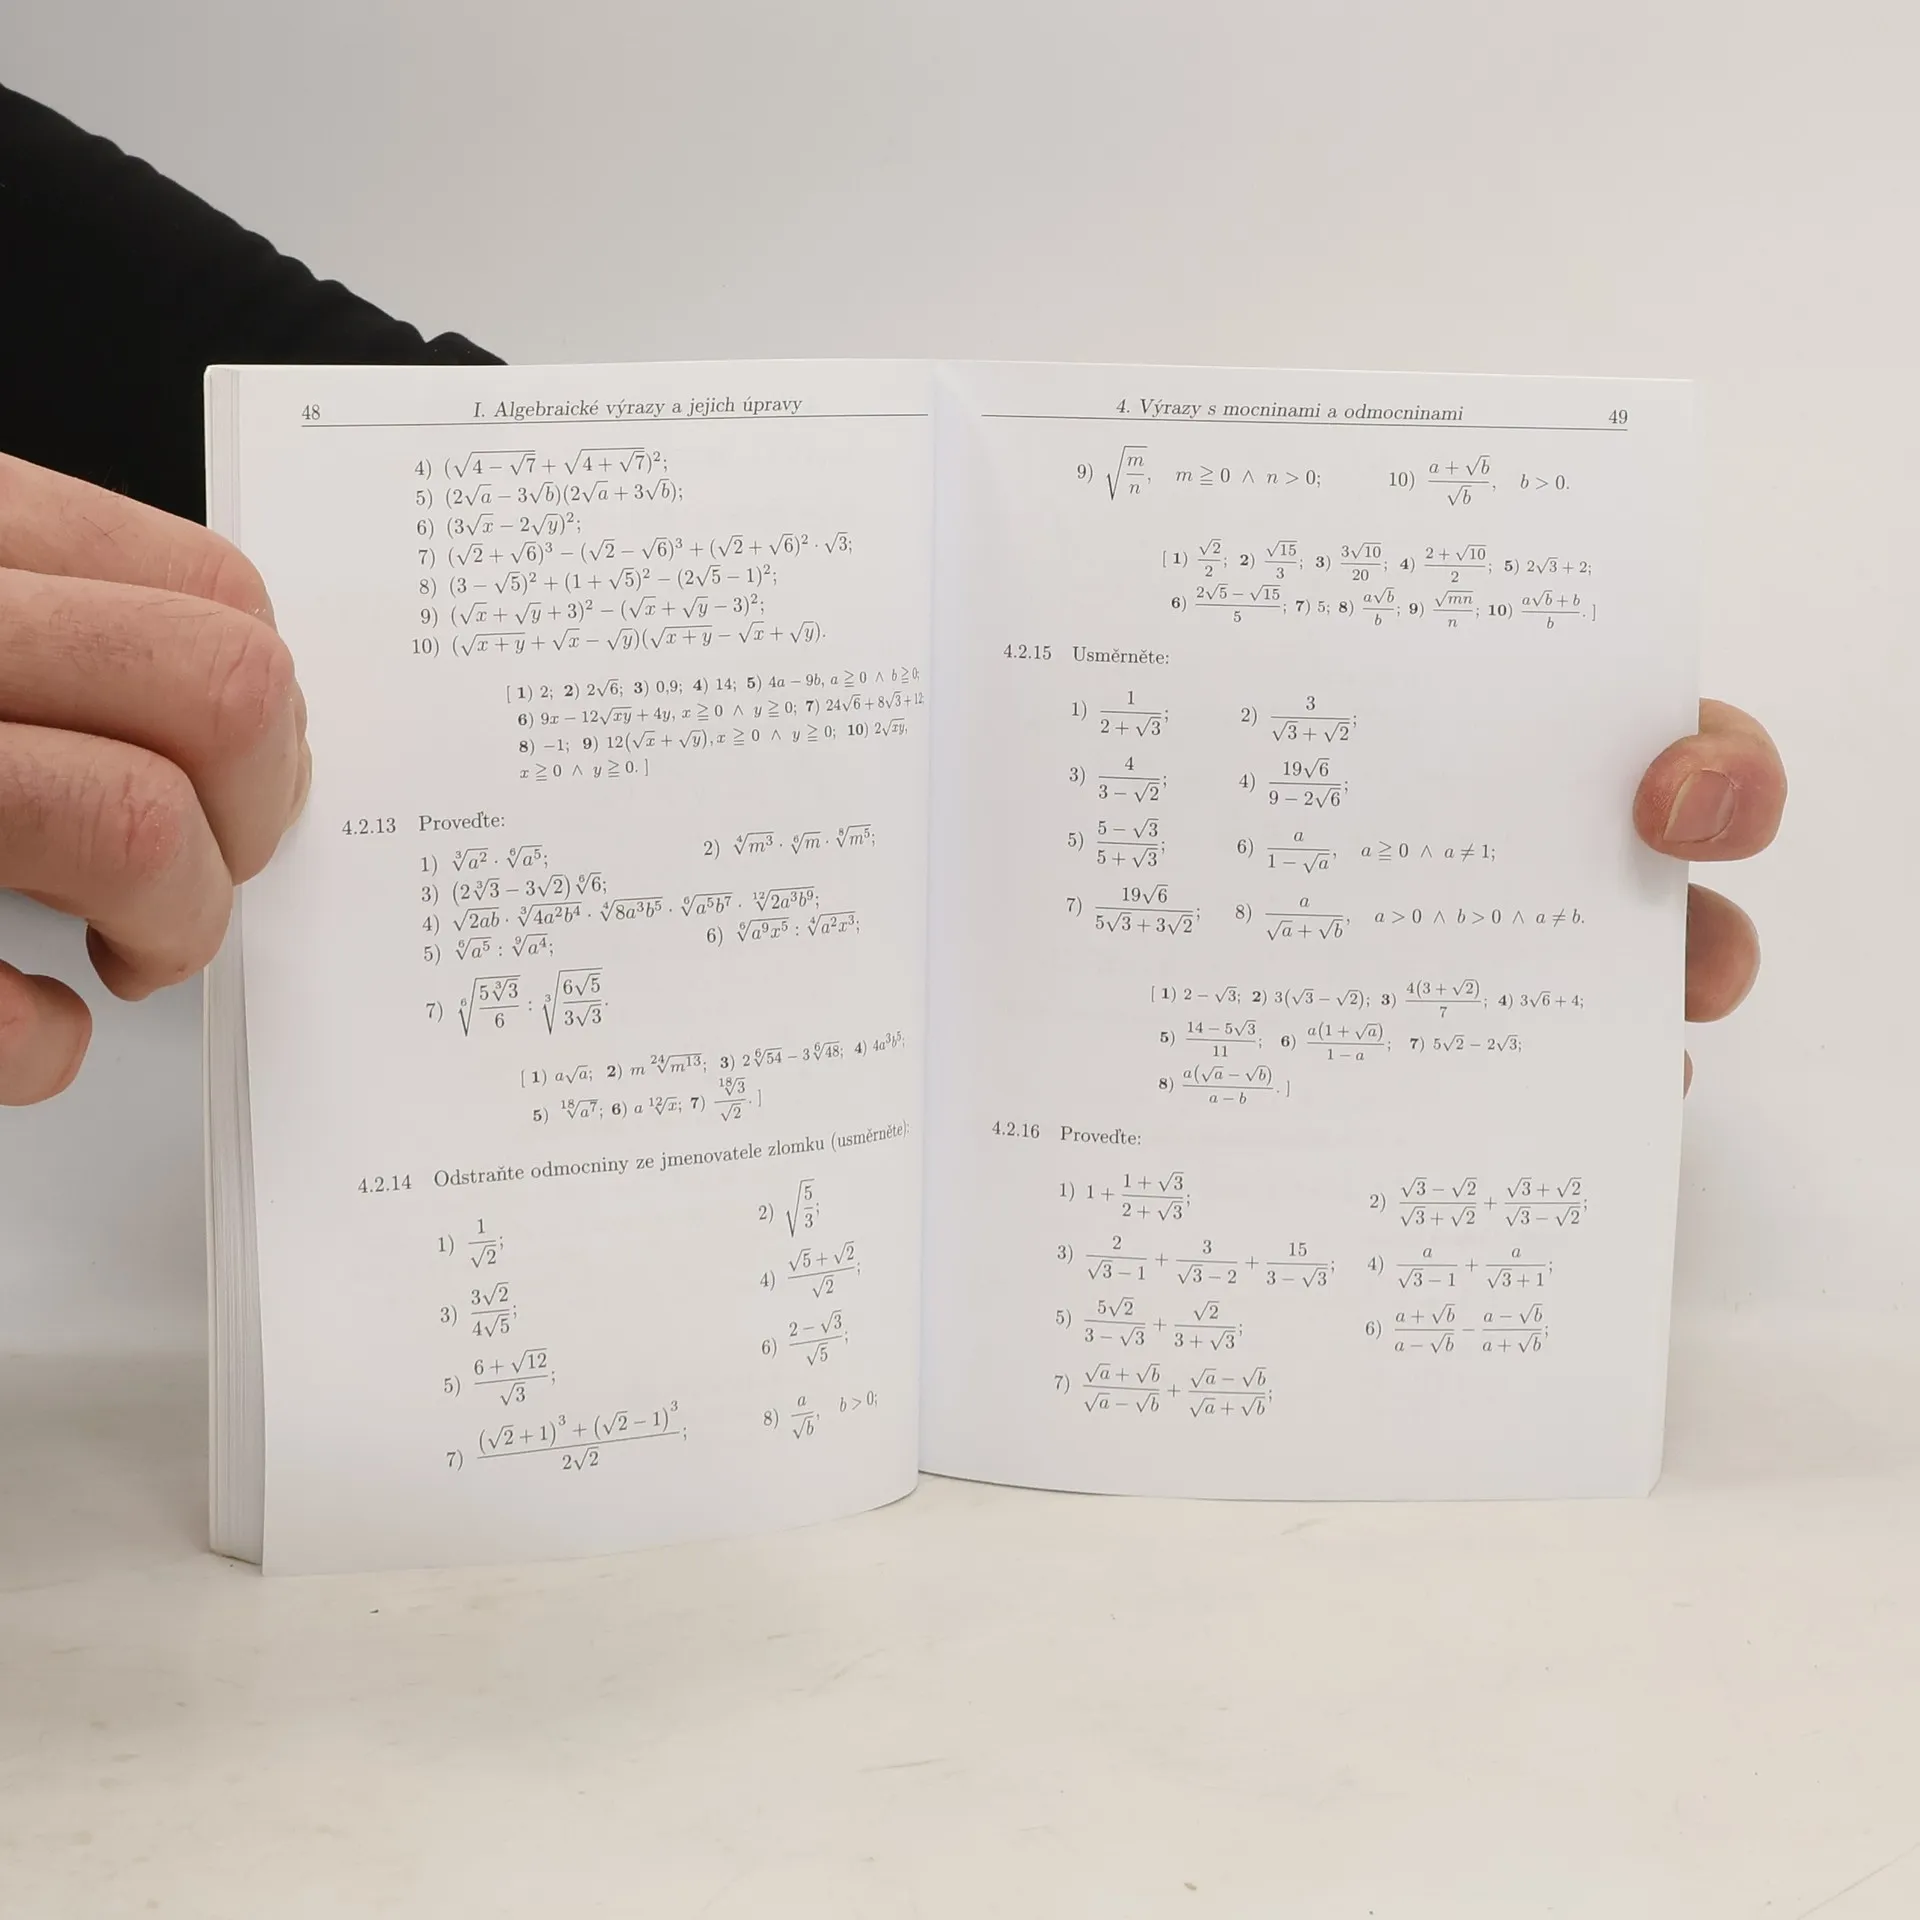 48 I. Algebraické výrazy a jejich úpravy
4) (√(4 − √7) + √(4 + √7))²;
5) (2√a − 3√b)(2√a + 3√b);
6) (3√x − 2√y)²;
7) (√2 + √6)³ − (√2 − √6)³ + (√2 + √6)² · √3;
8) (3 − √5)² + (1 + √5)² − (2√5 − 1)²;
9) (√x + √y + 3)² − (√x + √y − 3)²;
10) (√(x + y) + √x − √y)(√(x + y) − √x + √y).
[ 1) 2; 2) 2√6; 3) 0,9; 4) 14; 5) 4a − 9b, a ≧ 0 ∧ b ≧ 0;
6) 9x − 12√(xy) + 4y, x ≧ 0 ∧ y ≧ 0; 7) 24√6 + 8√3 + 12;
8) −1; 9) 12(√x + √y), x ≧ 0 ∧ y ≧ 0; 10) 2√(xy),
x ≧ 0 ∧ y ≧ 0. ]
4.2.13 Proveďte:
1) ∛(a²) · ⁶√(a⁵); 2) ⁴√(m³) · ⁶√m · ⁸√(m⁵);
3) (2∛3 − 3√2) ⁶√6;
4) √(2ab) · ∛(4a²b⁴) · ⁴√(8a³b⁵) · ⁶√(a⁵b⁷) · ¹²√(2a³b⁹);
5) ⁶√(a⁵) : ⁹√(a⁴); 6) ⁶√(a⁹x⁵) : ⁴√(a²x³);
7) ⁶√((5∛3)/6) : ∛((6√5)/(3√3)).
[ 1) a√a; 2) m ²⁴√(m¹³); 3) 2 ⁶√54 − 3 ⁶√48; 4) 4a³b⁵;
5) ¹⁸√(a⁷); 6) a ¹²√x; 7) ¹⁸√3/√2. ]
4.2.14 Odstraňte odmocniny ze jmenovatele zlomku (usměrněte):
1) 1/√2; 2) √(5/3);
3) (3√2)/(4√5); 4) (√5 + √2)/√2;
5) (6 + √12)/√3; 6) (2 − √3)/√5;
7) ((√2 + 1)³ + (√2 − 1)³)/(2√2); 8) a/√b, b > 0;
4. Výrazy s mocninami a odmocninami 49
9) √(m/n), m ≧ 0 ∧ n > 0; 10) (a + √b)/√b, b > 0.
[ 1) √2/2; 2) √15/3; 3) 3√10/20; 4) (2 + √10)/2; 5) 2√3 + 2;
6) (2√5 − √15)/5; 7) 5; 8) a√b/b; 9) √(mn)/n; 10) (a√b + b)/b. ]
4.2.15 Usměrněte:
1) 1/(2 + √3); 2) 3/(√3 + √2);
3) 4/(3 − √2); 4) 19√6/(9 − 2√6);
5) (5 − √3)/(5 + √3); 6) a/(1 − √a), a ≧ 0 ∧ a ≠ 1;
7) 19√6/(5√3 + 3√2); 8) a/(√a + √b), a > 0 ∧ b > 0 ∧ a ≠ b.
[ 1) 2 − √3; 2) 3(√3 − √2); 3) 4(3 + √2)/7; 4) 3√6 + 4;
5) (14 − 5√3)/11; 6) a(1 + √a)/(1 − a); 7) 5√2 − 2√3;
8) a(√a − √b)/(a − b). ]
4.2.16 Proveďte:
1) 1 + (1 + √3)/(2 + √3); 2) (√3 − √2)/(√3 + √2) + (√3 + √2)/(√3 − √2);
3) 2/(√3 − 1) + 3/(√3 − 2) + 15/(3 − √3); 4) a/(√3 − 1) + a/(√3 + 1);
5) 5√2/(3 − √3) + √2/(3 + √3); 6) (a + √b)/(a − √b) − (a − √b)/(a + √b);
7) (√a + √b)/(√a − √b) + (√a − √b)/(√a + √b);